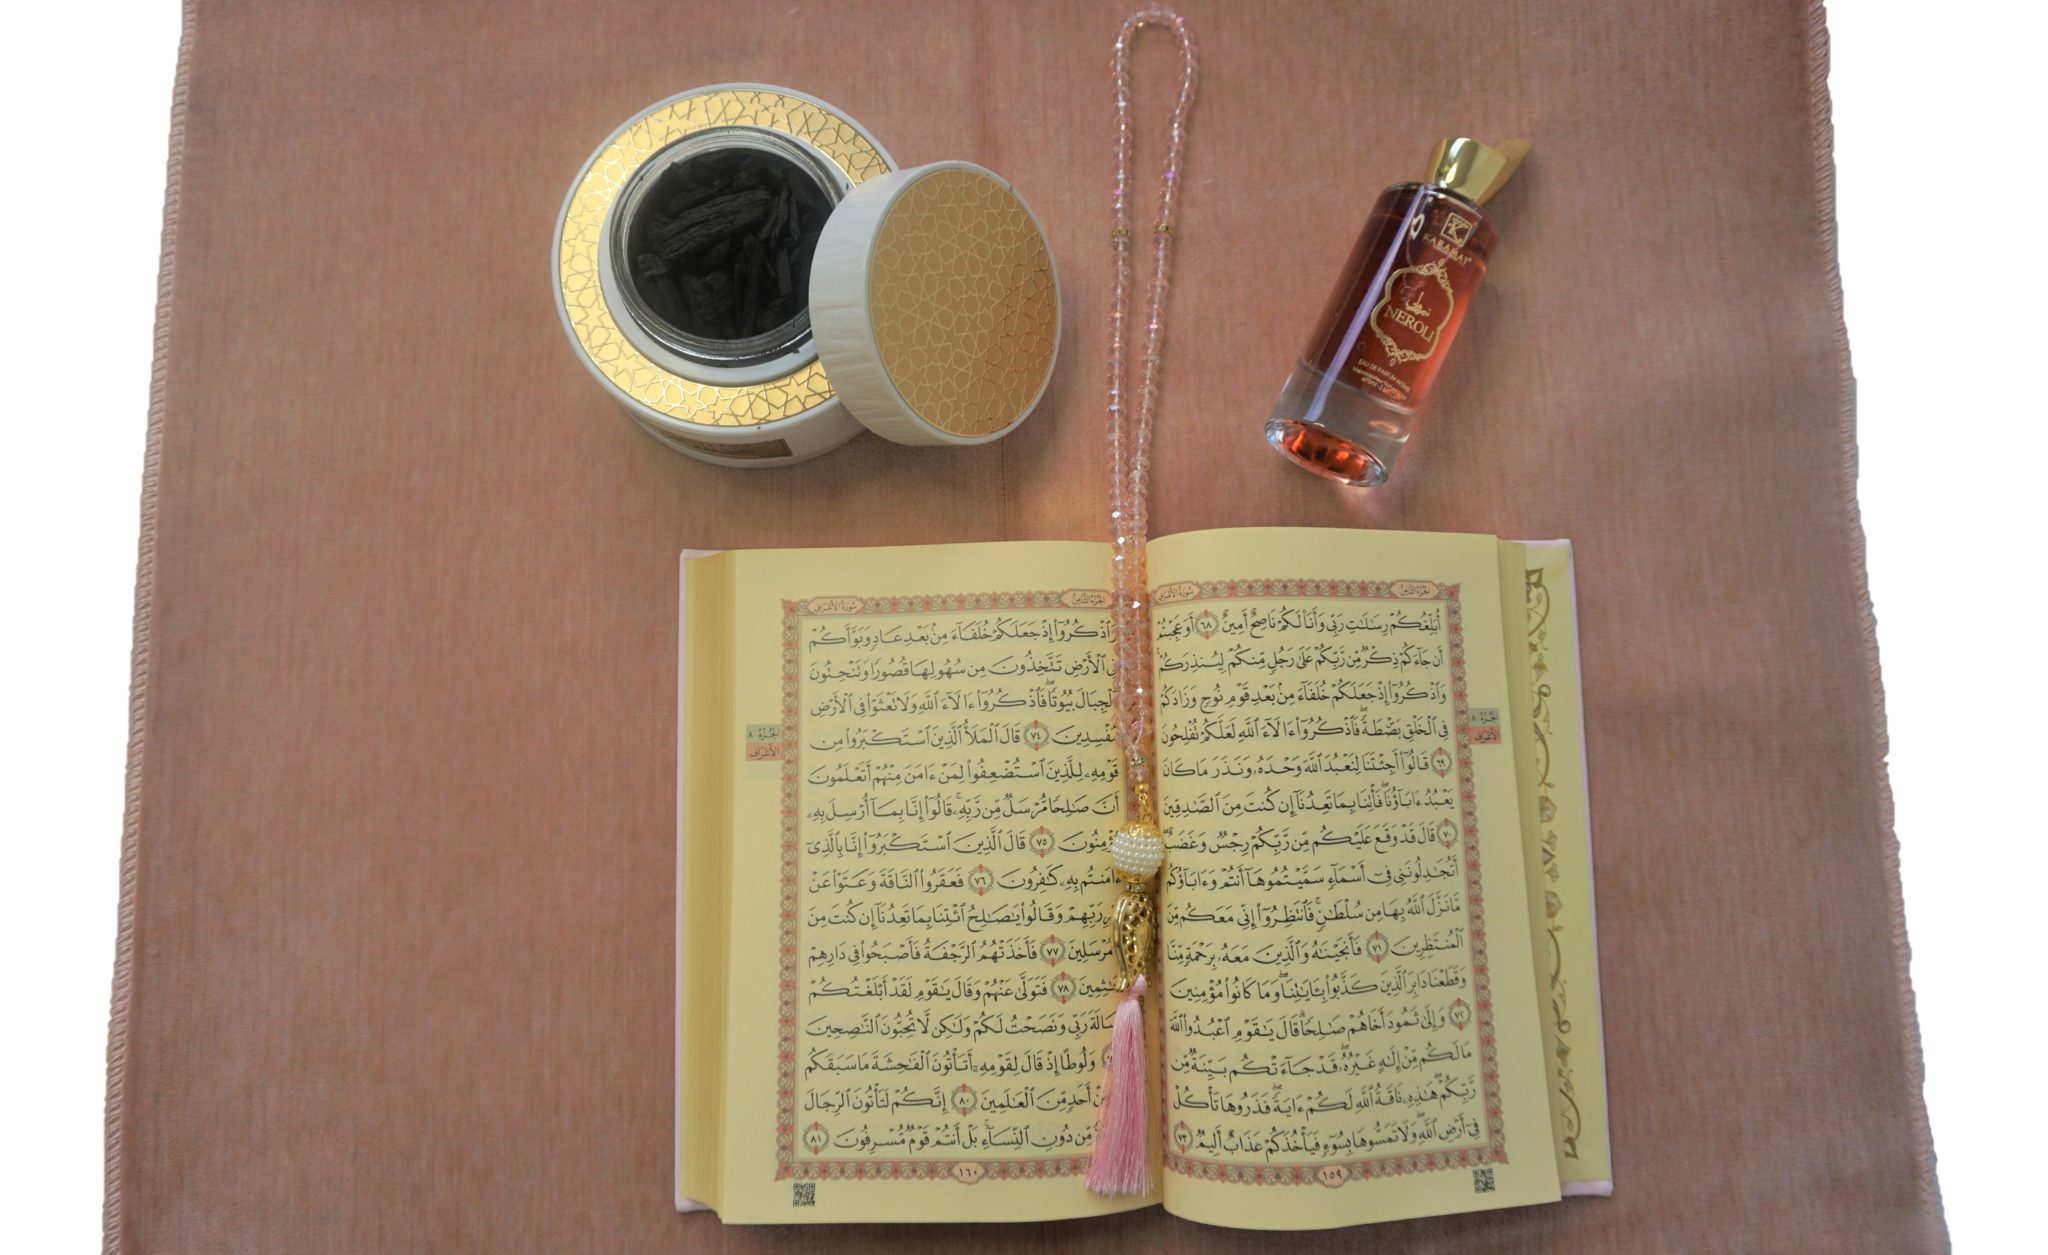 KARAMAT
نيرولي
NEROLI
EAU DE PARFUM INTENSE
الجزء الثامن
سورة الأعراف
أُبَلِّغُكُمْ رِسَٰلَٰتِ رَبِّى وَأَنَا۠ لَكُمْ نَاصِحٌ أَمِينٌ ٦٨ أَوَعَجِبْتُمْ
أَن جَآءَكُمْ ذِكْرٌ مِّن رَّبِّكُمْ عَلَىٰ رَجُلٍ مِّنكُمْ لِيُنذِرَكُمْ ۚ
وَٱذْكُرُوٓا۟ إِذْ جَعَلَكُمْ خُلَفَآءَ مِنۢ بَعْدِ قَوْمِ نُوحٍ وَزَادَكُمْ
فِى ٱلْخَلْقِ بَصْۜطَةً ۖ فَٱذْكُرُوٓا۟ ءَالَآءَ ٱللَّهِ لَعَلَّكُمْ تُفْلِحُونَ
٦٩ قَالُوٓا۟ أَجِئْتَنَا لِنَعْبُدَ ٱللَّهَ وَحْدَهُۥ وَنَذَرَ مَا كَانَ
يَعْبُدُ ءَابَآؤُنَا ۖ فَأْتِنَا بِمَا تَعِدُنَآ إِن كُنتَ مِنَ ٱلصَّٰدِقِينَ
٧٠ قَالَ قَدْ وَقَعَ عَلَيْكُم مِّن رَّبِّكُمْ رِجْسٌ وَغَضَبٌ ۖ
أَتُجَٰدِلُونَنِى فِىٓ أَسْمَآءٍ سَمَّيْتُمُوهَآ أَنتُمْ وَءَابَآؤُكُم
مَّا نَزَّلَ ٱللَّهُ بِهَا مِن سُلْطَٰنٍ ۚ فَٱنتَظِرُوٓا۟ إِنِّى مَعَكُم مِّنَ
ٱلْمُنتَظِرِينَ ٧١ فَأَنجَيْنَٰهُ وَٱلَّذِينَ مَعَهُۥ بِرَحْمَةٍ مِّنَّا
وَقَطَعْنَا دَابِرَ ٱلَّذِينَ كَذَّبُوا۟ بِـَٔايَٰتِنَا ۖ وَمَا كَانُوا۟ مُؤْمِنِينَ
٧٢ وَإِلَىٰ ثَمُودَ أَخَاهُمْ صَٰلِحًا ۗ قَالَ يَٰقَوْمِ ٱعْبُدُوا۟ ٱللَّهَ
مَا لَكُم مِّنْ إِلَٰهٍ غَيْرُهُۥ ۖ قَدْ جَآءَتْكُم بَيِّنَةٌ مِّن
رَّبِّكُمْ ۖ هَٰذِهِۦ نَاقَةُ ٱللَّهِ لَكُمْ ءَايَةً ۖ فَذَرُوهَا تَأْكُلْ
فِىٓ أَرْضِ ٱللَّهِ ۖ وَلَا تَمَسُّوهَا بِسُوٓءٍ فَيَأْخُذَكُمْ عَذَابٌ أَلِيمٌ ٧٣
١٥٩
الجزء ٨
الأعراف
الجزء الثامن
سورة الأعراف
وَٱذْكُرُوٓا۟ إِذْ جَعَلَكُمْ خُلَفَآءَ مِنۢ بَعْدِ عَادٍ وَبَوَّأَكُمْ
فِى ٱلْأَرْضِ تَتَّخِذُونَ مِن سُهُولِهَا قُصُورًا وَتَنْحِتُونَ
ٱلْجِبَالَ بُيُوتًا ۖ فَٱذْكُرُوٓا۟ ءَالَآءَ ٱللَّهِ وَلَا تَعْثَوْا۟ فِى ٱلْأَرْضِ
مُفْسِدِينَ ٧٤ قَالَ ٱلْمَلَأُ ٱلَّذِينَ ٱسْتَكْبَرُوا۟ مِن
قَوْمِهِۦ لِلَّذِينَ ٱسْتُضْعِفُوا۟ لِمَنْ ءَامَنَ مِنْهُمْ أَتَعْلَمُونَ
أَنَّ صَٰلِحًا مُّرْسَلٌ مِّن رَّبِّهِۦ ۚ قَالُوٓا۟ إِنَّا بِمَآ أُرْسِلَ بِهِۦ
مُؤْمِنُونَ ٧٥ قَالَ ٱلَّذِينَ ٱسْتَكْبَرُوٓا۟ إِنَّا بِٱلَّذِىٓ
ءَامَنتُم بِهِۦ كَٰفِرُونَ ٧٦ فَعَقَرُوا۟ ٱلنَّاقَةَ وَعَتَوْا۟ عَنْ
أَمْرِ رَبِّهِمْ وَقَالُوا۟ يَٰصَٰلِحُ ٱئْتِنَا بِمَا تَعِدُنَآ إِن كُنتَ مِنَ
ٱلْمُرْسَلِينَ ٧٧ فَأَخَذَتْهُمُ ٱلرَّجْفَةُ فَأَصْبَحُوا۟ فِى دَارِهِمْ
جَٰثِمِينَ ٧٨ فَتَوَلَّىٰ عَنْهُمْ وَقَالَ يَٰقَوْمِ لَقَدْ أَبْلَغْتُكُمْ
رِسَالَةَ رَبِّى وَنَصَحْتُ لَكُمْ وَلَٰكِن لَّا تُحِبُّونَ ٱلنَّٰصِحِينَ
وَلُوطًا إِذْ قَالَ لِقَوْمِهِۦٓ أَتَأْتُونَ ٱلْفَٰحِشَةَ مَا سَبَقَكُم
مِنْ أَحَدٍ مِّنَ ٱلْعَٰلَمِينَ ٨٠ إِنَّكُمْ لَتَأْتُونَ ٱلرِّجَالَ
مِّن دُونِ ٱلنِّسَآءِ ۚ بَلْ أَنتُمْ قَوْمٌ مُّسْرِفُونَ ٨١
١٦٠
الجزء ٨
الأعراف